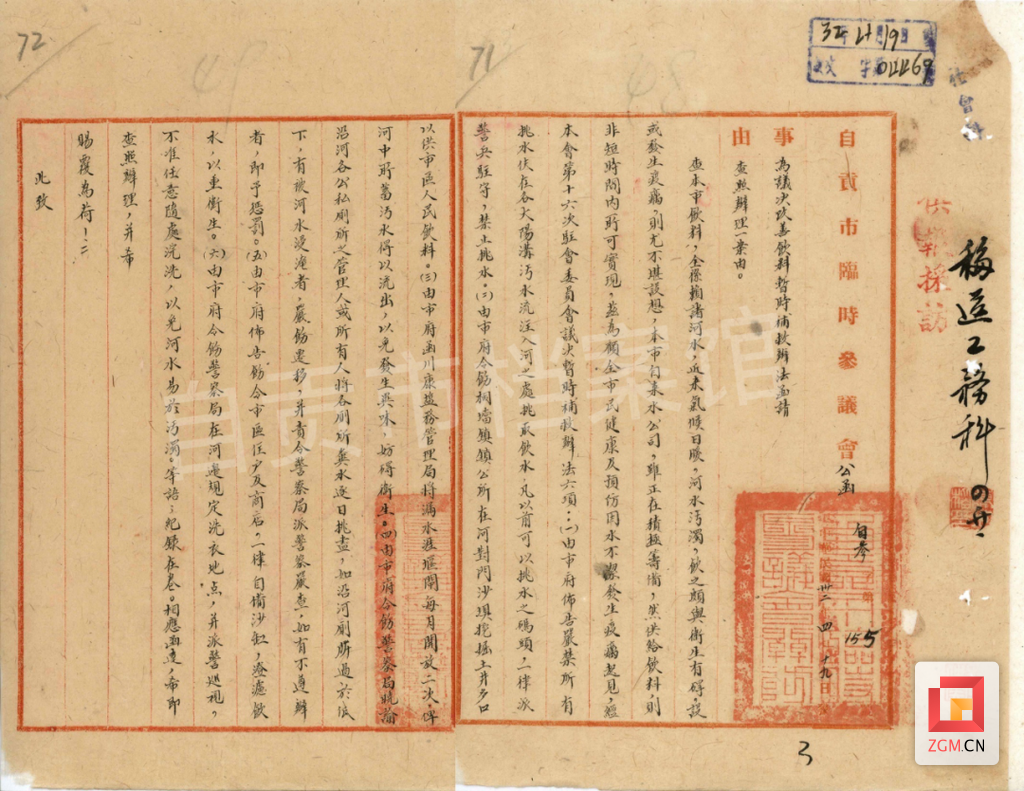 72
71
32年4月19日
收文 字第04469
社會科
供機採訪
移送工務科
自貢市臨時參議會公函
自參 字第 155 號
中華民國卅二年四月十九日
事由
為議決改善飲料暫時補救辦法函請
查照辦理一案由。
查本市飲料,全係擔諸河水,近來氣候日暖,河水汚濁,飲之頗與衛生有碍,設
或發生疫癘,則尤不堪設想,本市自來水公司,雖正在積極籌備,然供給飲料,則
非短時間內所可實現,茲為顧全市民健康及預防因水不潔發生疫癘起見,經
本會第十六次駐會委員會議決暫時補救辦法六項:(一)由市府佈告嚴禁所有
挑水伕在各大陽溝汚水流注入河之處挑取飲水,凡以前可以挑水之碼頭,一律派
警兵駐守,禁止挑水。(二)由市府令飭桐垱鎮鎮公所在河對門沙壩挖掘土井多口
以供市區人民飲料。(三)由市府函川康鹽務管理局將漏水壅堰閘每月開放二次,俾
河中所蓄汚水得以流出,以免發生臭味,妨碍衛生。(四)由市府令飭警察局曉諭
沿河各公私厠所之管理人或所有人將各厠所糞水逐日挑盡,如沿河厠所過於低
下,有被河水浸淹者,嚴飭遷移,并責令警察局派警察嚴查,如有不遵辦
者,即予懲罰。(五)由市府佈告飭令市區住户及商店,一律自備沙缸,澄濾飲
水,以重衛生。(六)由市府令飭警察局在河邊規定洗衣地点,并派警巡視,
不准任意隨處浣洗,以免河水易於汚濁。等語;紀錄在卷。相應函達,希即
查照辦理,并希
賜覆為荷!
此致
3
自贡市档案馆
ZGM.CN